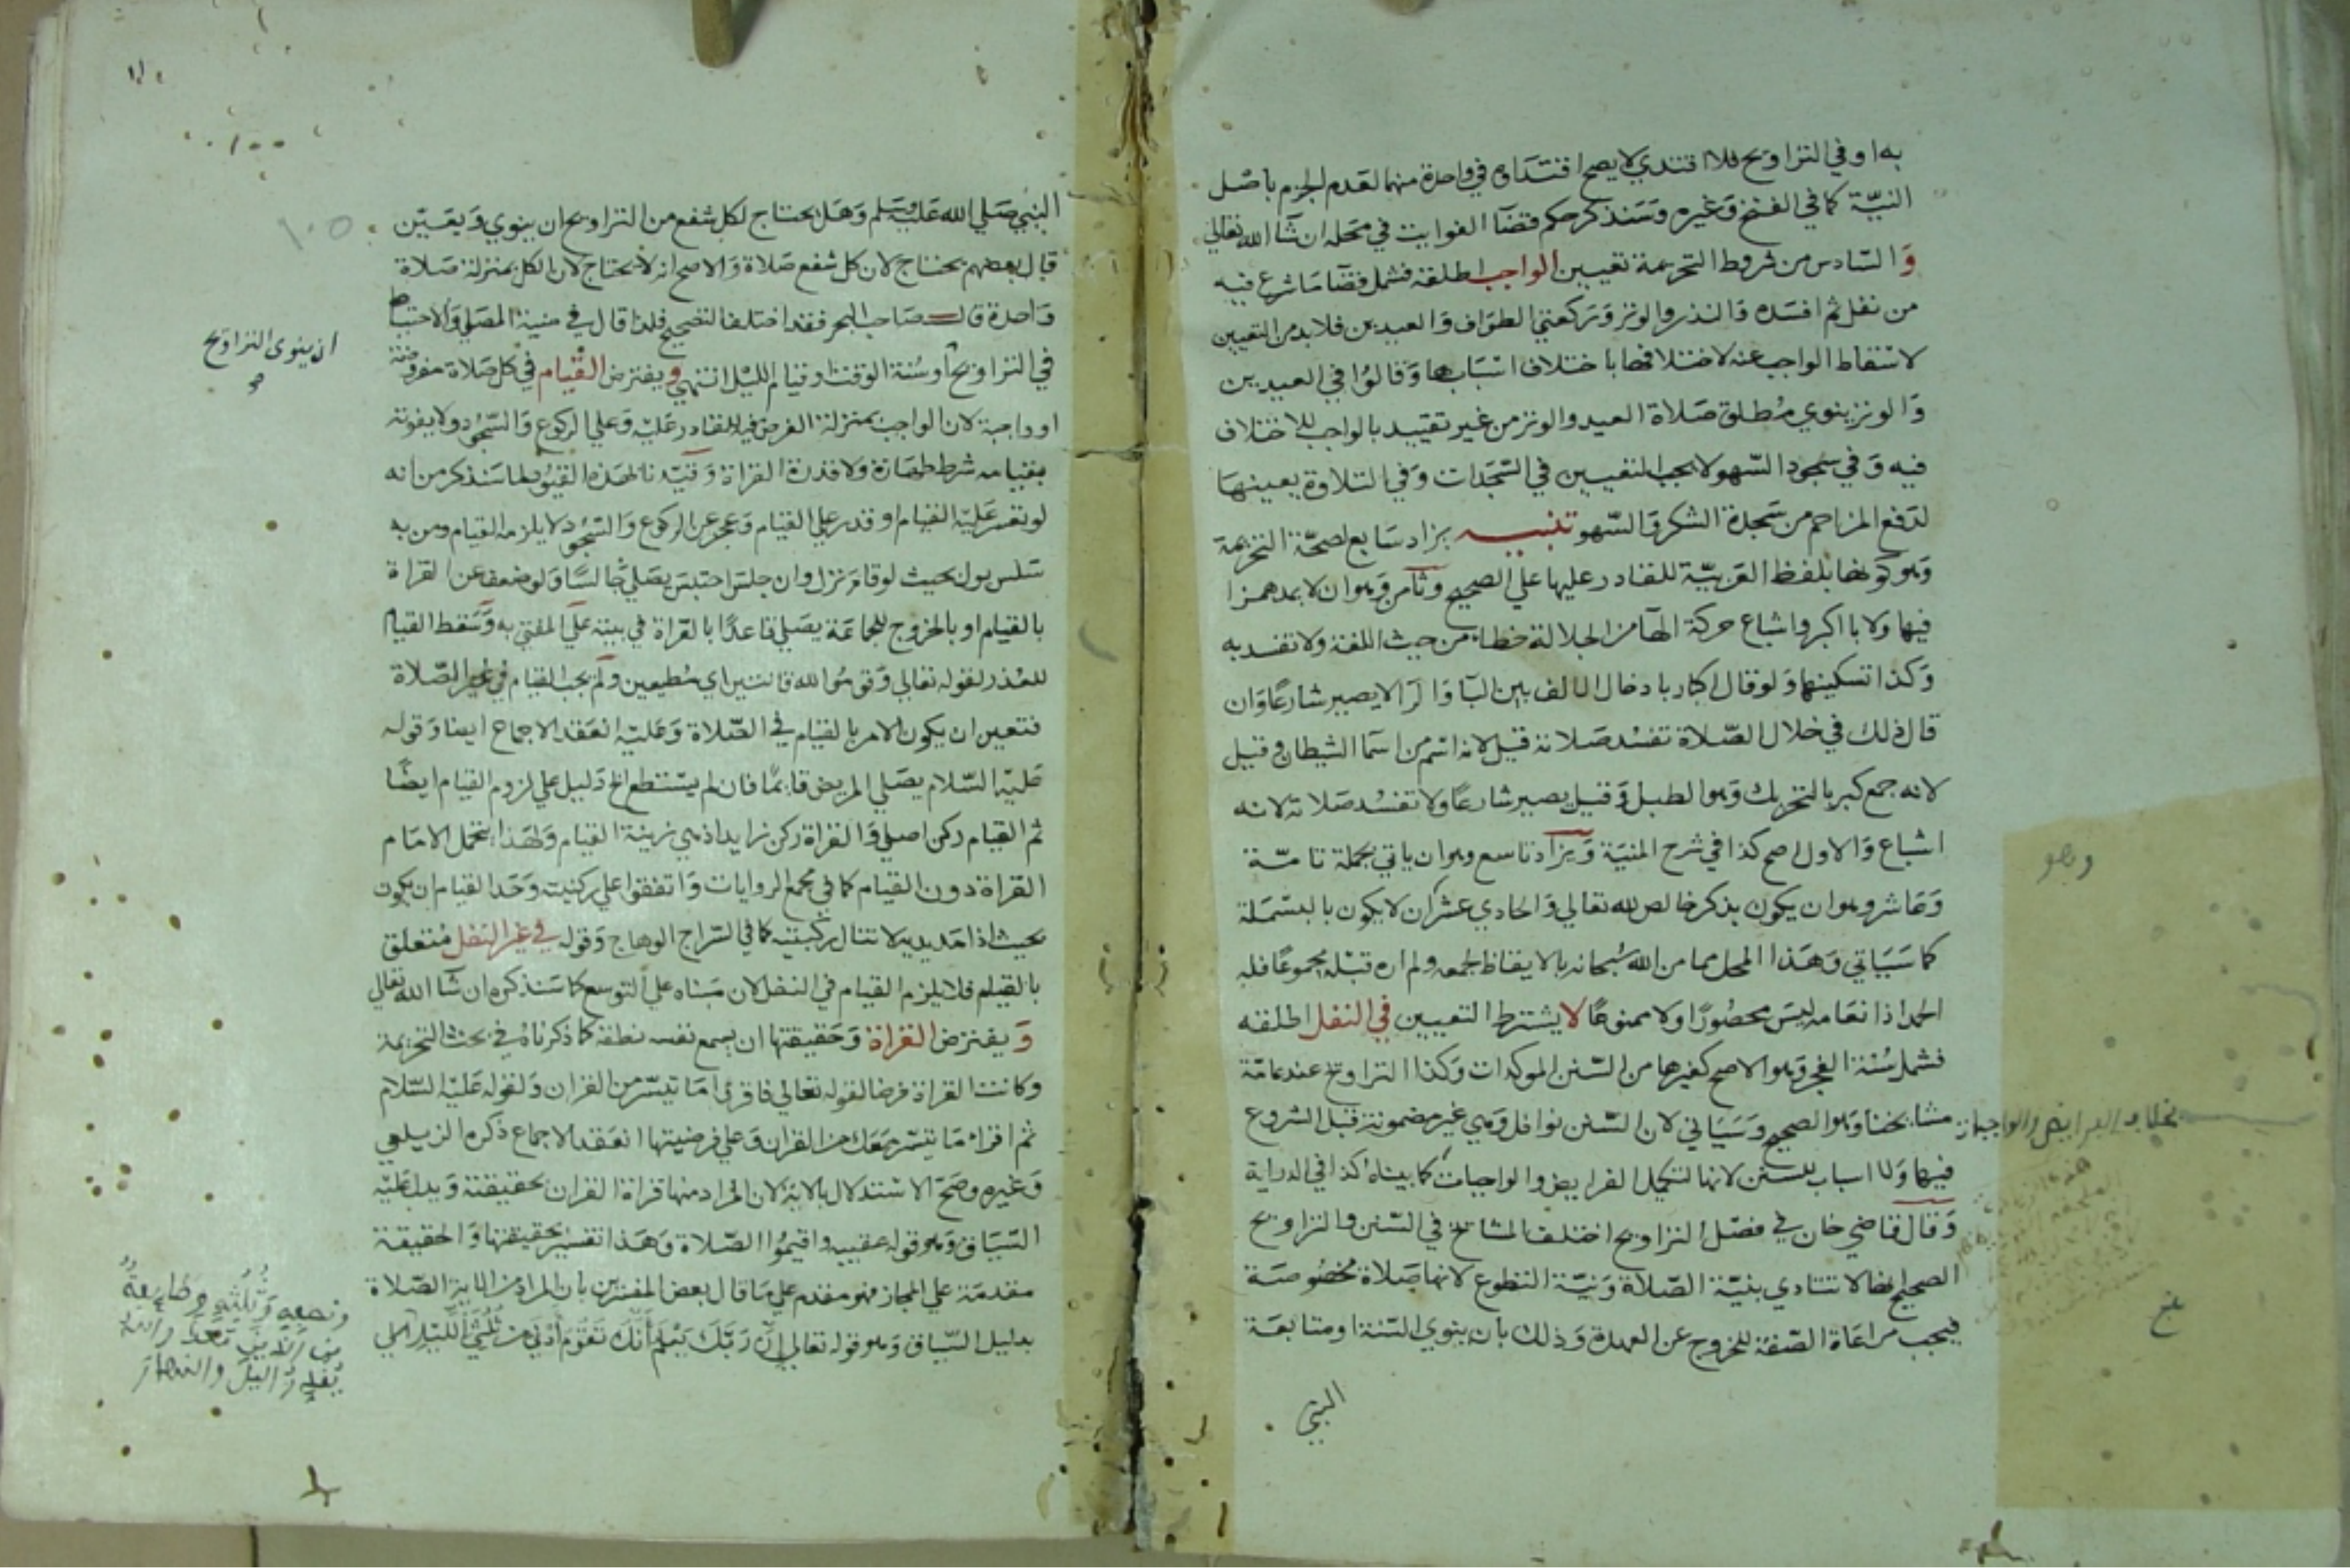 به او في التراويح فلا اقتدي لا يصح اقتداوه في واحدة منهما لعدم الجزم باصل
النيّة كما في الفتح وَغيره وَسَنذكر حكم قضآ الفوايت في محله ان شآ الله تعالي
وَالسّادس من شروط التحريمة تعيين الواجب اطلقه فشمل قضآ ما شرع فيه
من نفل ثم افسَده وَالنذر والوتر وَركعتي الطوَاف وَالعيدين فلا بد من التعيين
لاسْقاط الواجب عنه لاختلافها باختلاف اسْبَابها وَقالوُا في العيدين
وَالوتر ينوي مُطلق صَلاة العيد والوتر من غير تقييد بالواجب للاختلاف
فيه وَفي سجود السّهو لا يجب التعيين في السّجَدات وَفي التلاوة يعينهَا
لدَفع المزاحم من سَجدة الشكر وَالسّهو تنبيـــه يزاد سَابع لصحّة التحريمة
وَهو كونها بلفظ العَربيّة للقادر عليها علي الصحيح وثامن وَهو ان لا يمد همزا
فيها وَلا باا كبر واشباع حركة الهآ من الجلالة خطاء من حيث اللغة ولا تفسد به
وَكذا تسكينها وَلو قال اكبار بادخال الالف بين البآ وَالرا لا يصير شارعًا وَان
قال ذلك في خلال الصّلاة تفسُد صَلاته قيل لانه اسْم من اسَما الشيطان وقيل
لانه جمع كبر بالتحريك وَهو الطبل وَقيل يصير شارعًا وَلا تفسُد صَلاته لانه
اشباع وَالاول اصح كذا في شرح المنيَة وَيزاد تاسع وهو ان ياتي بجملة تامّة
وَعَاشر وهو ان يكون بذكر خالص لله تعالي وَالحادي عشر ان لا يكون بالبسْمَلة
كما سَيَاتي وَهَذا المحل مما من الله سُبحانه بالايقاظ لجمعه ولم اره قبْله مجموعًا فله
الحمد اذ انعَامه ليسَ محصُورًا ولا ممنوعًا لا يشترط التعيين في النفل اطلقه
فشمل سُنة الفجر وَهو الاصح كغيرها من السّنن الموكدات وَكذا التراويح عند عامّة
مشايخنا وَهو الصحيح وَسَيَاتي لان السّنن نوافل وَهي غير مضمونة قبل الشروع
فيها وَلا اسباب للسنن لانها لتكميل الفرايض والواجبات كما بيناه كذا في الدراية
وَقال قاضي خان في فصل التراويح اختلف المشايخ في السّنن والتراويح
الصحيح انها لا تتادي بنيّة الصّلاة وَنيّة التطوع لانها صَلاة مخصُوصَة
فيجب مراعَاة الصّفة للخروج عن العهدة وَذلك بان ينوي السّنة او متابعَة
النبي
وهو
بلغ
١٠٠
١٠٥
النبي صَلي الله عَليه وسَلم وَهَل يحتاج لكل شفع من التراويح ان ينوي وَيعَيّن
قال بعضهم يحتاج لان كل شفع صَلاة وَالاصح انه لا يحتاج لان الكل بمنزلة صَلاة
وَاحدة قالــ صَاحب البحر فقد اختلف التصحيح فلذا قال في منية المصَلي وَالاحتياط
في التراويح او سُنة الوقت او قيام الليْل انتهي وَيفترض القيام في كل صَلاة مفروضة
او واجبة لان الواجب بمنزلة الفرض فيه للقادر عَليه وَعلي الركوع وَالسّجُود ولا يفوته
بقيامه شرط طهَارة ولا قدرة القراة وَقيّدنا بهَذه القيُود لما سَنذكر من انه
لو تعسر عَليْه القيام او قدر علي القيام وَعجز عن الركوع وَالسّجُود لا يلزمه القيام ومن به
سَلس بول بحيث لو قام نزل وان جلسَ احتبسَ يصَلي جالسًا وَلو ضعف عن القراة
بالقيام او بالخروج للجماعَة يصَلي قاعدًا بالقراة في بيته عَلي المفتي به وَسَقط القيام
للعُذر لقوله تعالي وَقومُوا لله قانتين اي مُطيعين وَلم يجب القيام في غير الصّلاة
فتعين ان يكون الامر بالقيام في الصّلاة وَعَليْه انعَقد الاجماع ايضا وَقوله
عَليْه السّلام يصَلي المريض قايمًا فان لم يسْتطع الخ دَليل علي لزوم القيام ايضًا
ثم القيام ركن اصلي وَالقراة ركن زايد اذ هي زينة القيام وَلهَذا يتحمل الامَام
القراة دون القيام كما في مجمع الروايات وَاتفقوا علي ركنيته وَحَد القيام ان يكون
بحيث اذا مَد يديه لا تنال ركبتيْه كما في السّراج الوهاج وَقوله في غير النفل مُتعلق
بالقيام فلا يلزم القيام في النفل لان مَبناه علي التوسع كما سَنذكره ان شآ الله تعالي
وَيفترض القراة وَحَقيقتها ان يسمع نفسه نطقه كما ذكرناهُ في بحث التحريمة
وكانت القراة فرضا لقوله تعالي فاقرؤا مَا تيسّر من القران وَلقوله عَليْه السّلام
ثم اقراء مَا تيسّر مَعَك من القران وَعلي فرضيتها انعَقد الاجماع ذكره الزيلعي
وَغيره وصَحّ الاسْتدلال بالاية لان المراد منها قراة القران بحقيقته وَيدل عَليْه
السّيَاق وَهو قوله عقيبه واقيمُوا الصّلاة وَهَذا تفسير بحقيقتها وَالحقيقة
مقدمَة علي المجاز فهو مقدم علي مَا قال بعض المفسّرين بان المراد من الاية الصّلاة
بدليل السّياق وَهو قوله تعالي إِنَّ رَبَّكَ يَعْلَمُ أَنَّكَ تَقُومُ أَدْنَى مِنْ ثُلُثَيِ اللَّيْلِ الي
ان ينوي التراويح
ونصفه وَثُلُثَه وَطَايفةٌ
من الذين معك والله
يُقدِّرُ الليلَ والنهارَ